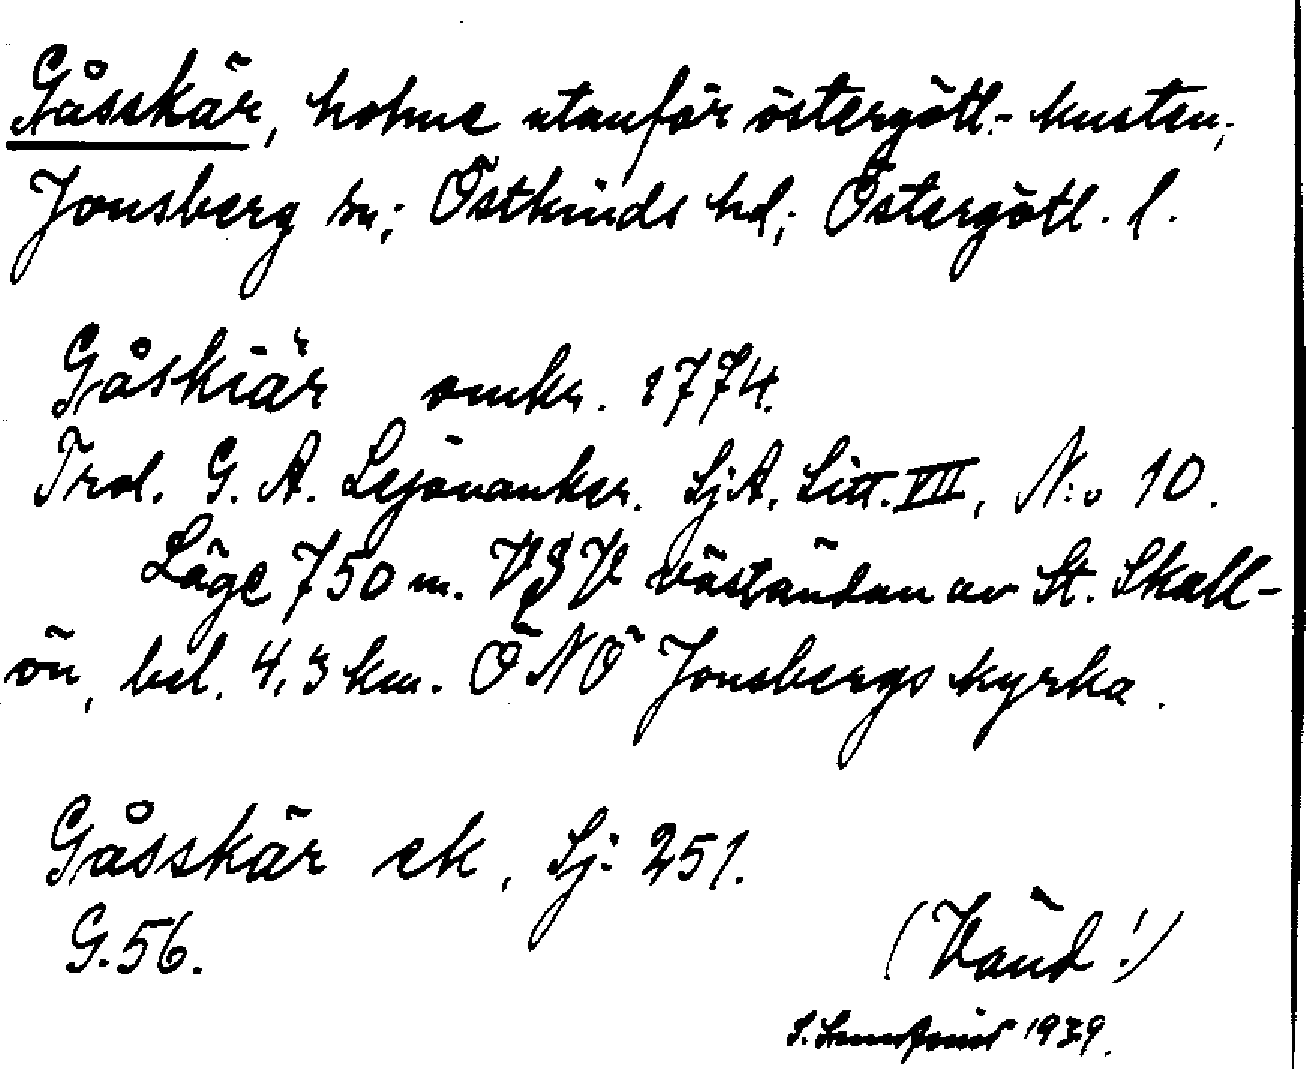 Gåsskär, holme utanför östergötl.- kusten;
Jonsberg sn; Östkinds hd; Östergötl. l.
Gåskiär omkr. 1774.
Trol. G. A. Lejonanker. SjA. Litt. VII, N:o 10.
Läge 750 m. VSV väständan av St. Skall-
ön, bel. 4,3 km. ÖNÖ Jonsbergs kyrka.
Gåsskär ek, Sj: 251.
G. 56.
(Vänd!)
S. 1939.